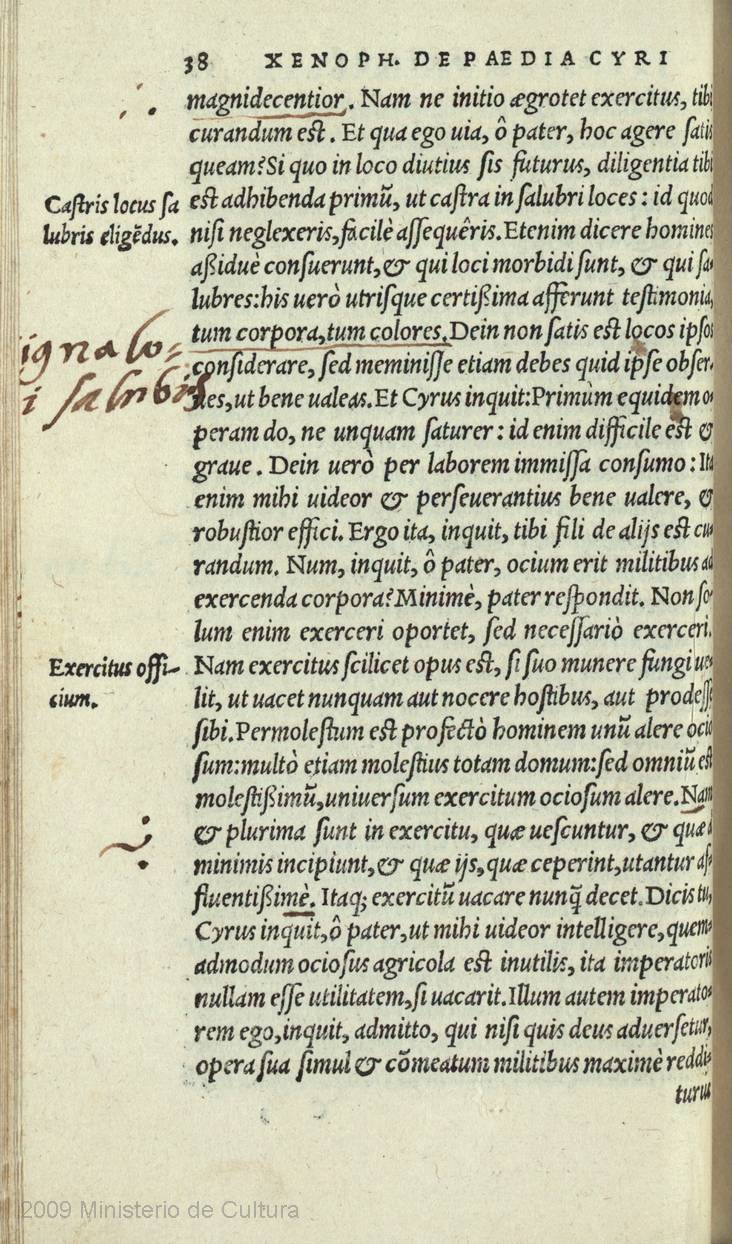 38 XENOPH. DE PAEDIA CYRI
magnidecentior. Nam ne initio ægrotet exercitus, tibi
curandum est. Et qua ego uia, ô pater, hoc agere satis
queam? Si quo in loco diutius sis futurus, diligentia tibi
Castris locus sa
lubris eligẽdus.
est adhibenda primũ, ut castra in salubri loces: id quod
nisi neglexeris, facilè assequêris. Etenim dicere homines
aßiduè consuerunt, & qui loci morbidi sunt, & qui sa-
lubres: his uerò utrisque certißima afferunt testimonia,
tum corpora, tum colores. Dein non satis est locos ipsos
igna lo-
i salubris
considerare, sed meminisse etiam debes quid ipse obser-
ues, ut bene ualeas. Et Cyrus inquit: Primùm equidem o-
peram do, ne unquam saturer: id enim difficile est &
graue. Dein uerò per laborem immissa consumo: Ita
enim mihi uideor & perseuerantius bene ualere, &
robustior effici. Ergo ita, inquit, tibi fili de alijs est cu-
randum. Num, inquit, ô pater, ocium erit militibus ad
exercenda corpora? Minimè, pater respondit. Non so-
lum enim exerceri oportet, sed necessariò exerceri.
Exercitus offi-
cium.
Nam exercitus scilicet opus est, si suo munere fungi ue-
lit, ut uacet nunquam aut nocere hostibus, aut prodesse
sibi. Permolestum est profectò hominem unũ alere ocio
sum: multò etiam molestius totam domum: sed omniũ est
molestißimũ, uniuersum exercitum ociosum alere. Nam
& plurima sunt in exercitu, quæ uescuntur, & quæ à
minimis incipiunt, & quæ ijs, quæ ceperint, utantur af-
fluentißimè. Itaq; exercitũ uacare nunq̃ decet. Dicis tu,
Cyrus inquit, ô pater, ut mihi uideor intelligere, quem-
admodum ociosus agricola est inutilis, ita imperatoris
nullam esse utilitatem, si uacarit. Illum autem imperato-
rem ego, inquit, admitto, qui nisi quis deus aduersetur,
opera sua simul & cõmeatum militibus maximè reddi-
turus
2009 Ministerio de Cultura